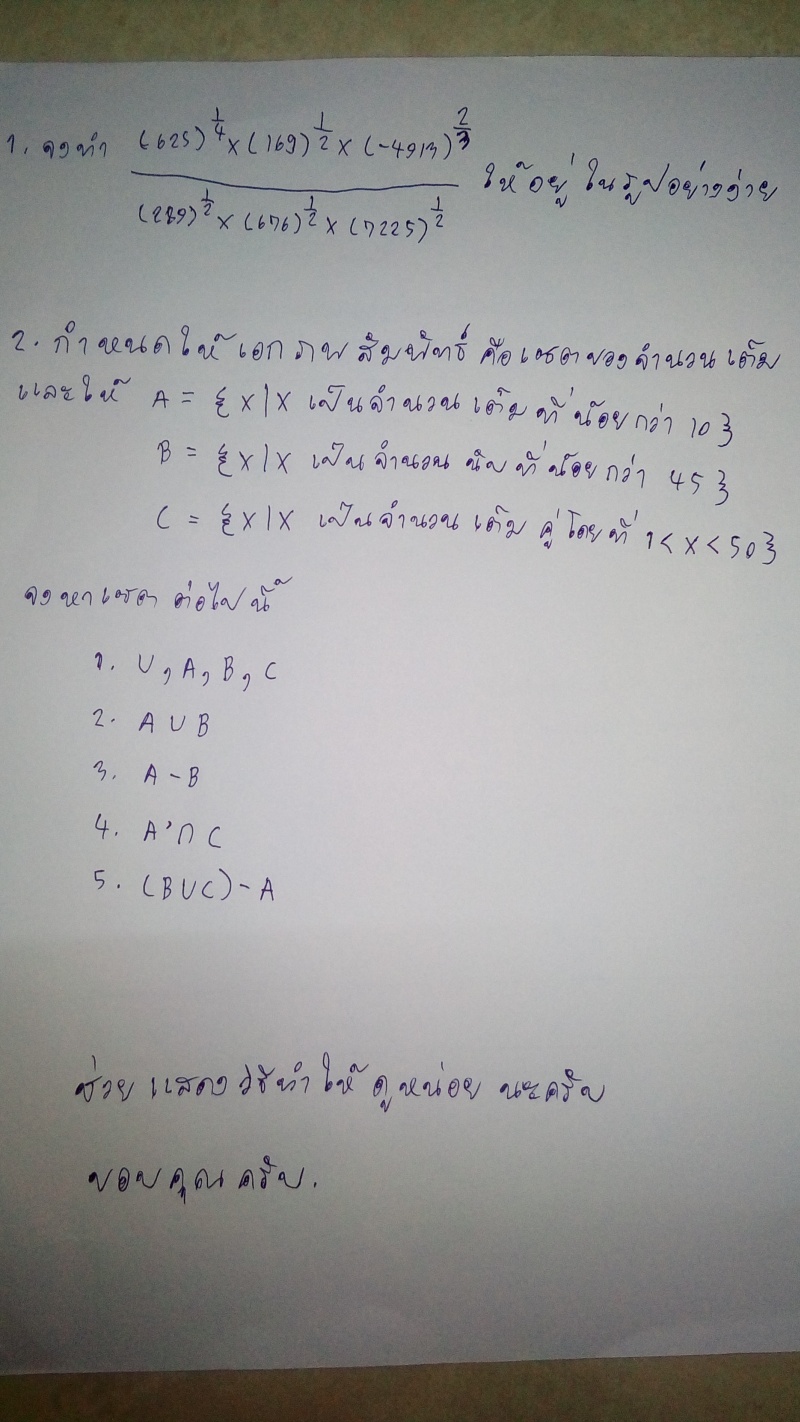 1. จงทำ (625)^{1/4} × (169)^{1/2} × (-4913)^{2/3} / (289)^{1/2} × (676)^{1/2} × (7225)^{1/2} ให้อยู่ในรูปอย่างง่าย
2. กำหนดให้เอกภพสัมพัทธ์ คือเซตของจำนวนเต็ม
และให้ A = {x|x เป็นจำนวนเต็มที่น้อยกว่า 10}
B = {x|x เป็นจำนวนนับที่น้อยกว่า 45}
C = {x|x เป็นจำนวนเต็มคู่โดยที่ 1<x<50}
จงหาเซตต่อไปนี้
1. U, A, B, C
2. A ∪ B
3. A - B
4. A'∩ C
5. (B∪C)-A
ช่วยแสดงวิธีทำให้ดูหน่อยนะครับ
ขอบคุณครับ.